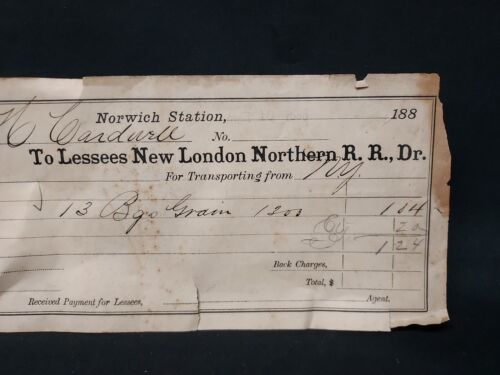 Norwich Station, 188
H Cardwell No.
To Lessees New London Northern R. R., Dr.
For Transporting from NY.
13 Bgs Grain 1300 1 04
20
1 24
Back Charges,
Total, $
Received Payment for Lessees, Agent.